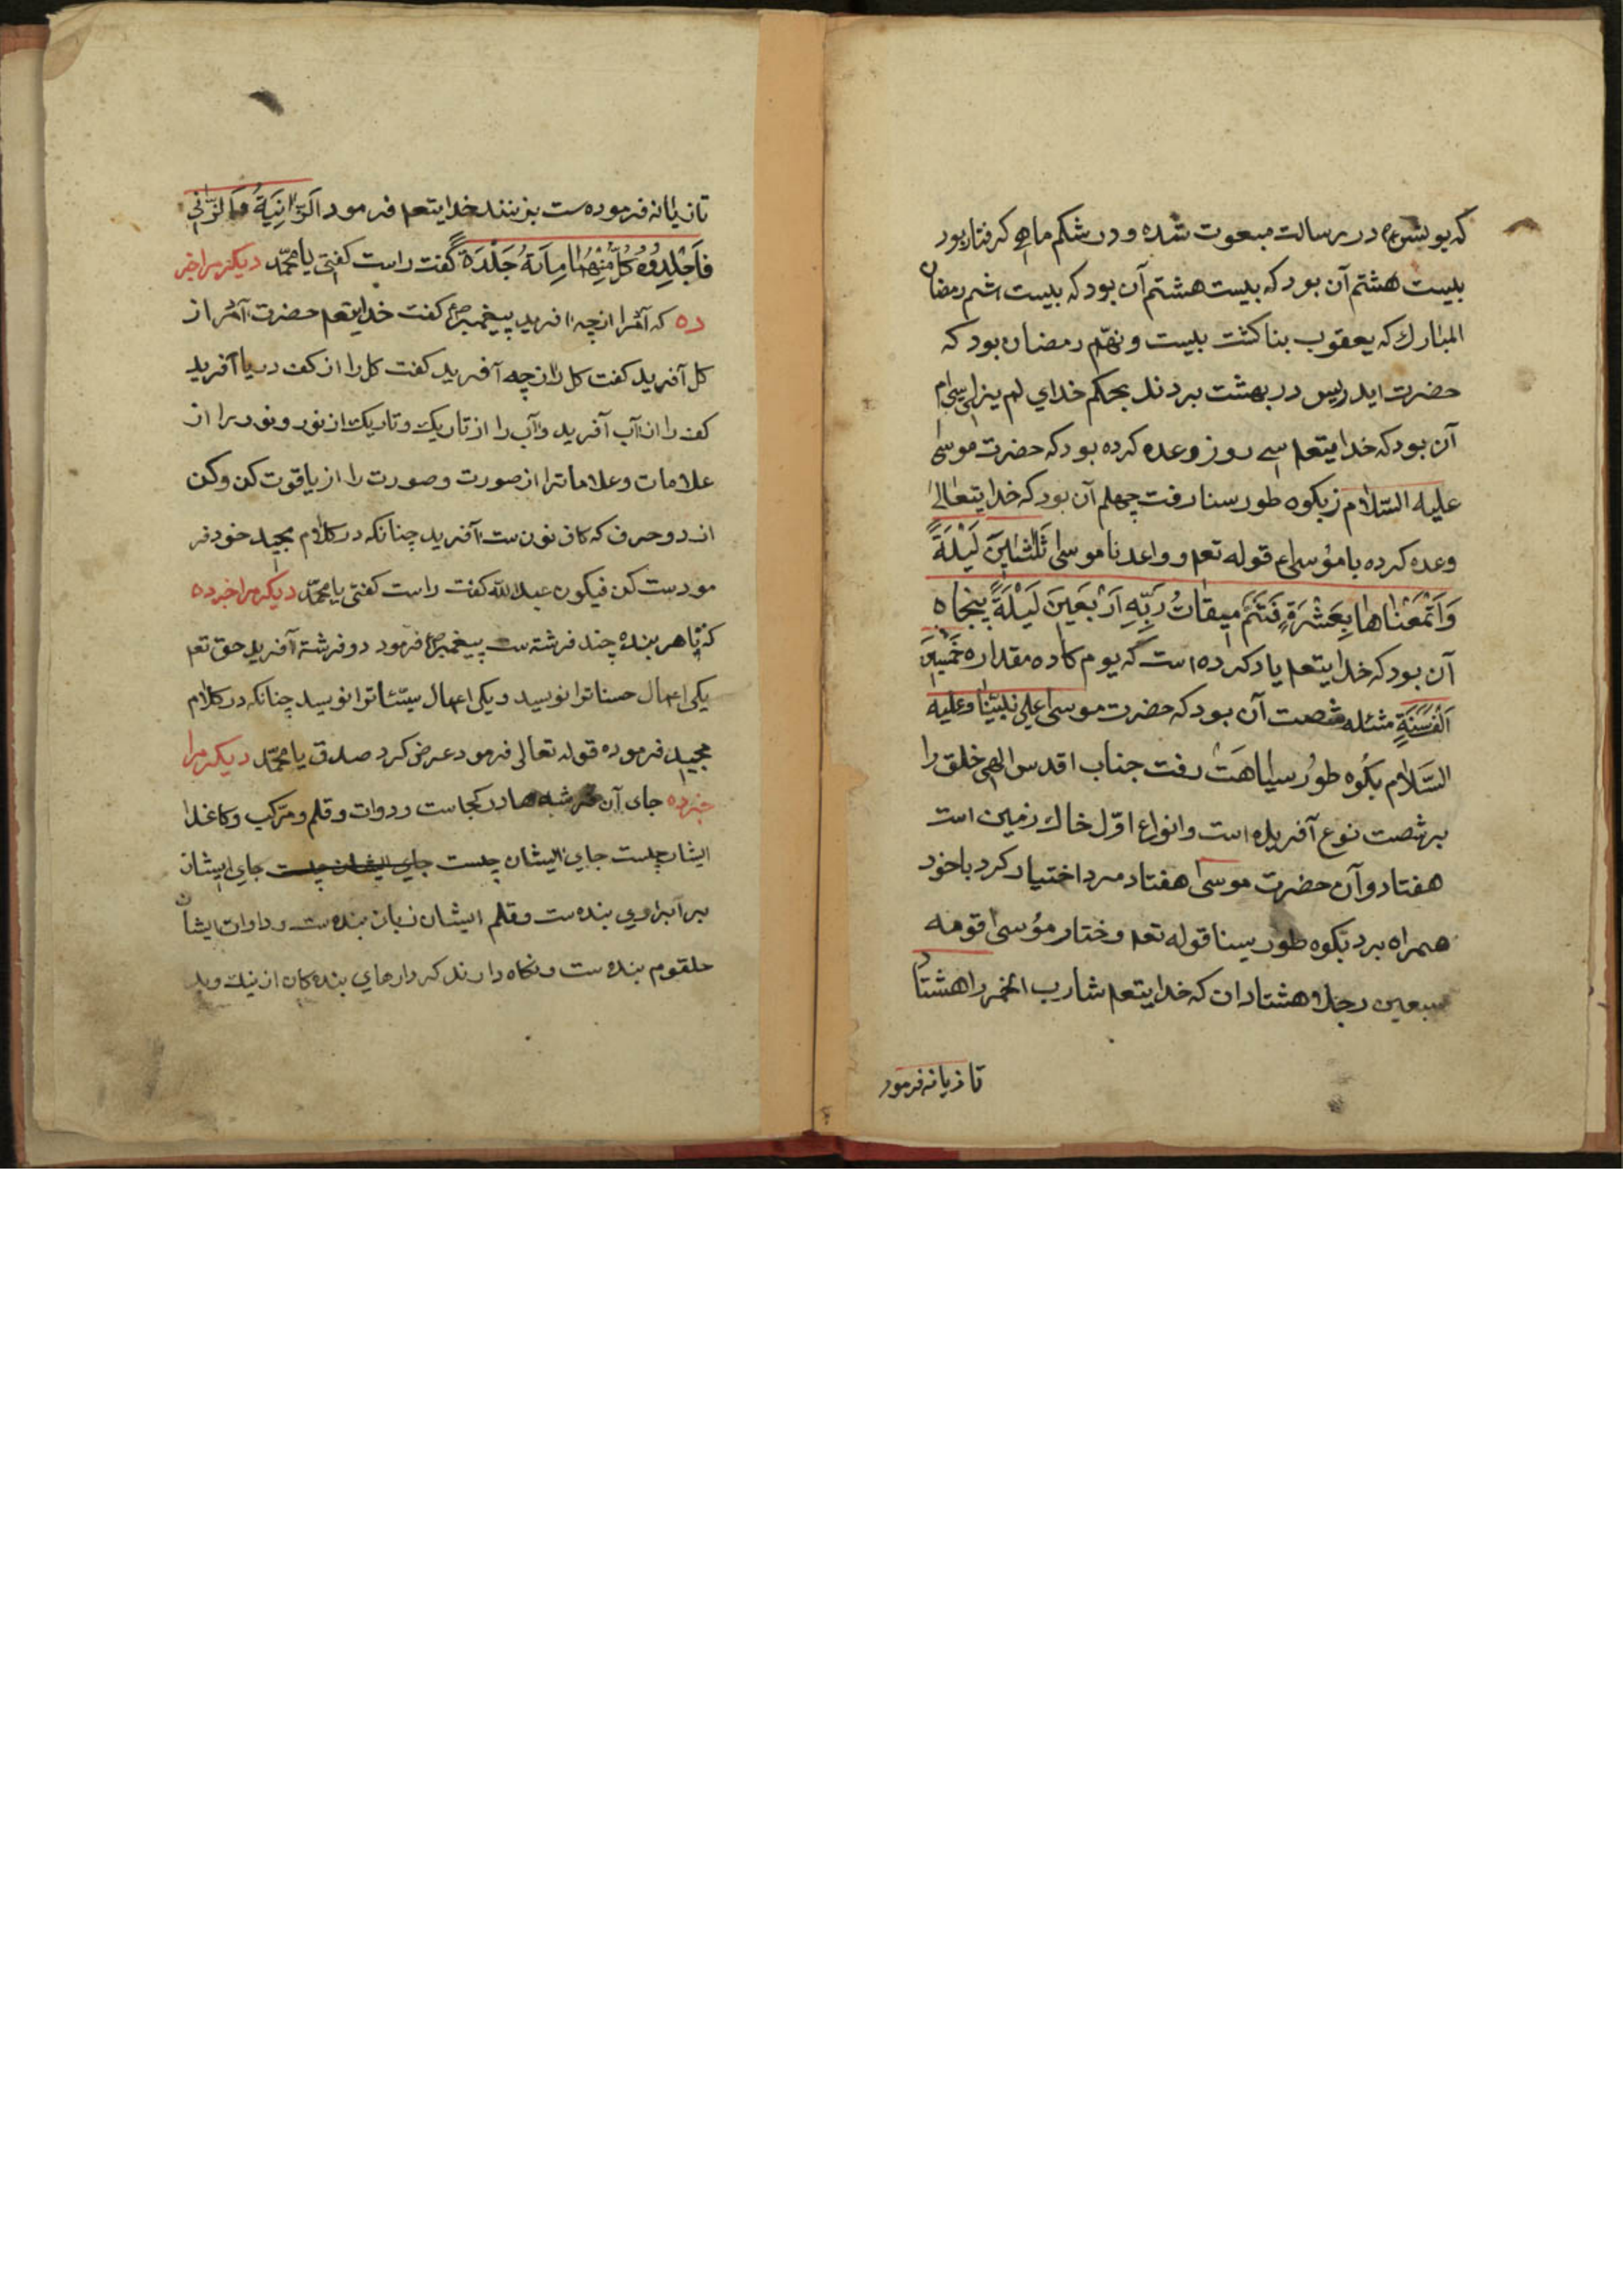 که یونس ع در رسالت مبعوت شده ودر شکم ماهی کرفتار بود
بیست هشتم آن بود که بیست هشتم آن بود که بیست اشم رمضان
المبارك که یعقوب بنا کشت بیست ونهّم رمضان بود که
حضرت ایدریس در بهشت بردند بحکم خدای لم یزلی سی ام
آن بود که خدایتعم سی روز وعده کرده بود که حضرت موسی
علیه السّلام زبکوه طور سنا رفت چهلم آن بود که خدایتعالی
وعده کرده با مؤسی ع قوله تعم و واعدنا موسی ثَلٰثٖینَ لَیْلَةً
وَاَتْمَعْناها بِعَشْرَةٍ فَتَمَّ میقاتُ رَبِّهِ اَرْبَعینَ لَیْلَةً پنجاه
آن بود که خدایتعم یاد کرده است که یوم کا ده مقداره خَمْسینَ
اَلْفَ سَنَةٍ مثئله شصت آن بود که حضرت موسی علی نبیّنا وعلیه
السّلام بکُوه طوُر سیاهَت رفت جناب اقدس الهی خلق را
بر شصت نوع آفریده است وانواع اوّل خاك زمین است
هفتاد وآن حضرت موسی هفتاد مرد اختیار کرد باخود
همراه برد بکوه طور سینا قوله تعم وختار مؤسی قومه
سبعین رجلا وهشتاد ان که خدایتعم شارب الخمر را هشتاد
تازیانه فرمود
تازیانه فرموده ست بزنند خدایتعم فرمود اَلزّانِیَةُ وَالزّانی
فَاجْلِدُوُه کُلَّ مِنْهُمٰا مِاَتةُ جَلْدَة گفت راست کفتی یا محمّد دیکر مرا خبر
ده که آدم را ازچه افرید پیغمبر ص کفت خدایتعم حضرت آدم را از
کل آفرید کفت کل را ازچه آفرید کفت کل را از کف دریا آفرید
کف را از آب آفرید وآب را از تاریك وتاریك از نور ونور را از
علامات وعلامات را از صورت وصورت را از یاقوت کن وکن
از دو حرف که کاف نون ست آفرید چنانکه در کلام مجید خود فر
مودست کن فیکون عبدالله کفت راست کفتی یا محمّد دیکر مرا خبر ده
که با هر بنده چند فرشته ست پیغمبر ص فرمود دو فرشتهٔ آفرید حق تعم
یکی اعمال حسنات را نویسد ویکی اعمال سیّئات را نویسد چنانکه در کلام
مجید فرموده قوله تعالی فرمود عرض کرد صدق یا محمّد دیکر مرا
خبر ده جای آن فرشته ها در کجاست ودوات وقلم ومرّکب وکاغد
ایشان چیست جای ایشان چیست جای ایشان چیست جای ایشان
برابر اوی بنده ست وقلم ایشان زبان بنده ست وداوات ایشان
حلقوم بنده ست ونکاه دارند کردارهای بنده کان از نیك وبد